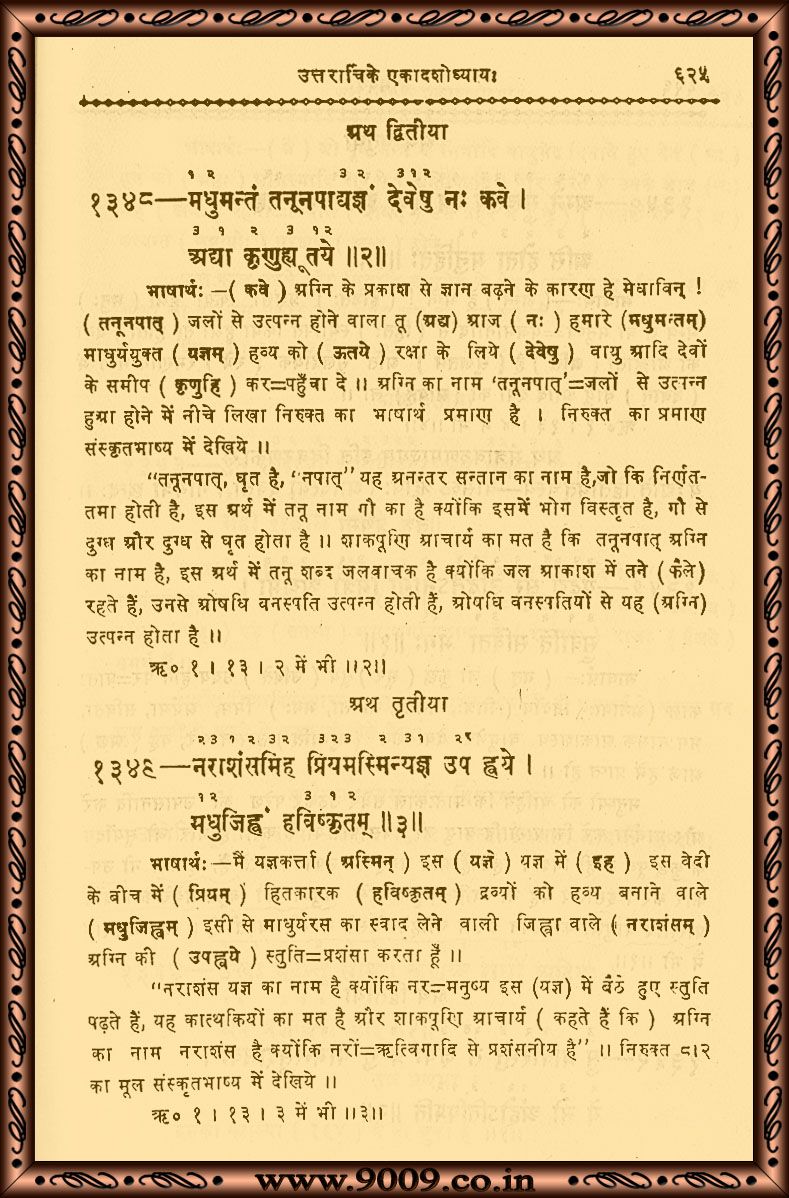 उत्तरार्चिके एकादशोध्यायः ६२५
अथ द्वितीया
१ २ ३ २ ३१२
१३४८—मधुमन्तं तनूनपाद्यज्ञं देवेषु नः कवे ।
३ १ २ ३ १२
अद्या कृणुह्यूतये ॥२॥
भाषार्थः—( कवे ) अग्नि के प्रकाश से ज्ञान बढ़ने के कारण हे मेधाविन् !
( तनूनपात् ) जलों से उत्पन्न होने वाला तू (अद्य) आज ( नः ) हमारे (मधुमन्तम्)
माधुर्ययुक्त ( यज्ञम् ) हव्य को ( ऊतये ) रक्षा के लिये ( देवेषु ) वायु आदि देवों
के समीप ( कृणुहि ) कर=पहुँचा दे ॥ अग्नि का नाम ‘तनूनपात्’=जलों से उत्पन्न
हुआ होने में नीचे लिखा निरुक्त का भाषार्थ प्रमाण है । निरुक्त का प्रमाण
संस्कृतभाष्य में देखिये ॥
“तनूनपात्, घृत है, ‘नपात्” यह अनन्तर सन्तान का नाम है,जो कि निर्णत-
तमा होती है, इस अर्थ में तनू नाम गौ का है क्योंकि इसमें भोग विस्तृत है, गौ से
दुग्ध और दुग्ध से घृत होता है ॥ शाकपूणि आचार्य का मत है कि तनूनपात् अग्नि
का नाम है, इस अर्थ में तनू शब्द जलवाचक है क्योंकि जल आकाश में तने (फैले)
रहते हैं, उनसे ओषधि वनस्पति उत्पन्न होती हैं, ओषधि वनस्पतियों से यह (अग्नि)
उत्पन्न होता है ॥
ऋ० १ । १३ । २ में भी ॥२॥
अथ तृतीया
२३ १ २ ३२ ३२३ २ ३१ २र
१३४९—नराशंसमिह प्रियमस्मिन्यज्ञ उप ह्वये ।
१२ ३ १ २
मधुजिह्वं हविष्कृतम् ॥३॥
भाषार्थः—मैं यज्ञकर्त्ता ( अस्मिन् ) इस ( यज्ञे ) यज्ञ में ( इह ) इस वेदी
के बीच में ( प्रियम् ) हितकारक ( हविष्कृतम् ) द्रव्यों को हव्य बनाने वाले
( मधुजिह्वम् ) इसी से माधुर्यरस का स्वाद लेने वाली जिह्वा वाले ( नराशंसम् )
अग्नि की ( उपह्वये ) स्तुति=प्रशंसा करता हूँ ॥
“नराशंस यज्ञ का नाम है क्योंकि नर=मनुष्य इस (यज्ञ) में बैठे हुए स्तुति
पढ़ते हैं, यह कात्थकियों का मत है और शाकपूणि आचार्य ( कहते हैं कि ) अग्नि
का नाम नराशंस है क्योंकि नरों=ऋत्विगादि से प्रशंसनीय है” ॥ निरुक्त ८।२
का मूल संस्कृतभाष्य में देखिये ॥
ऋ० १ । १३ । ३ में भी ॥३॥
www.9009.co.in